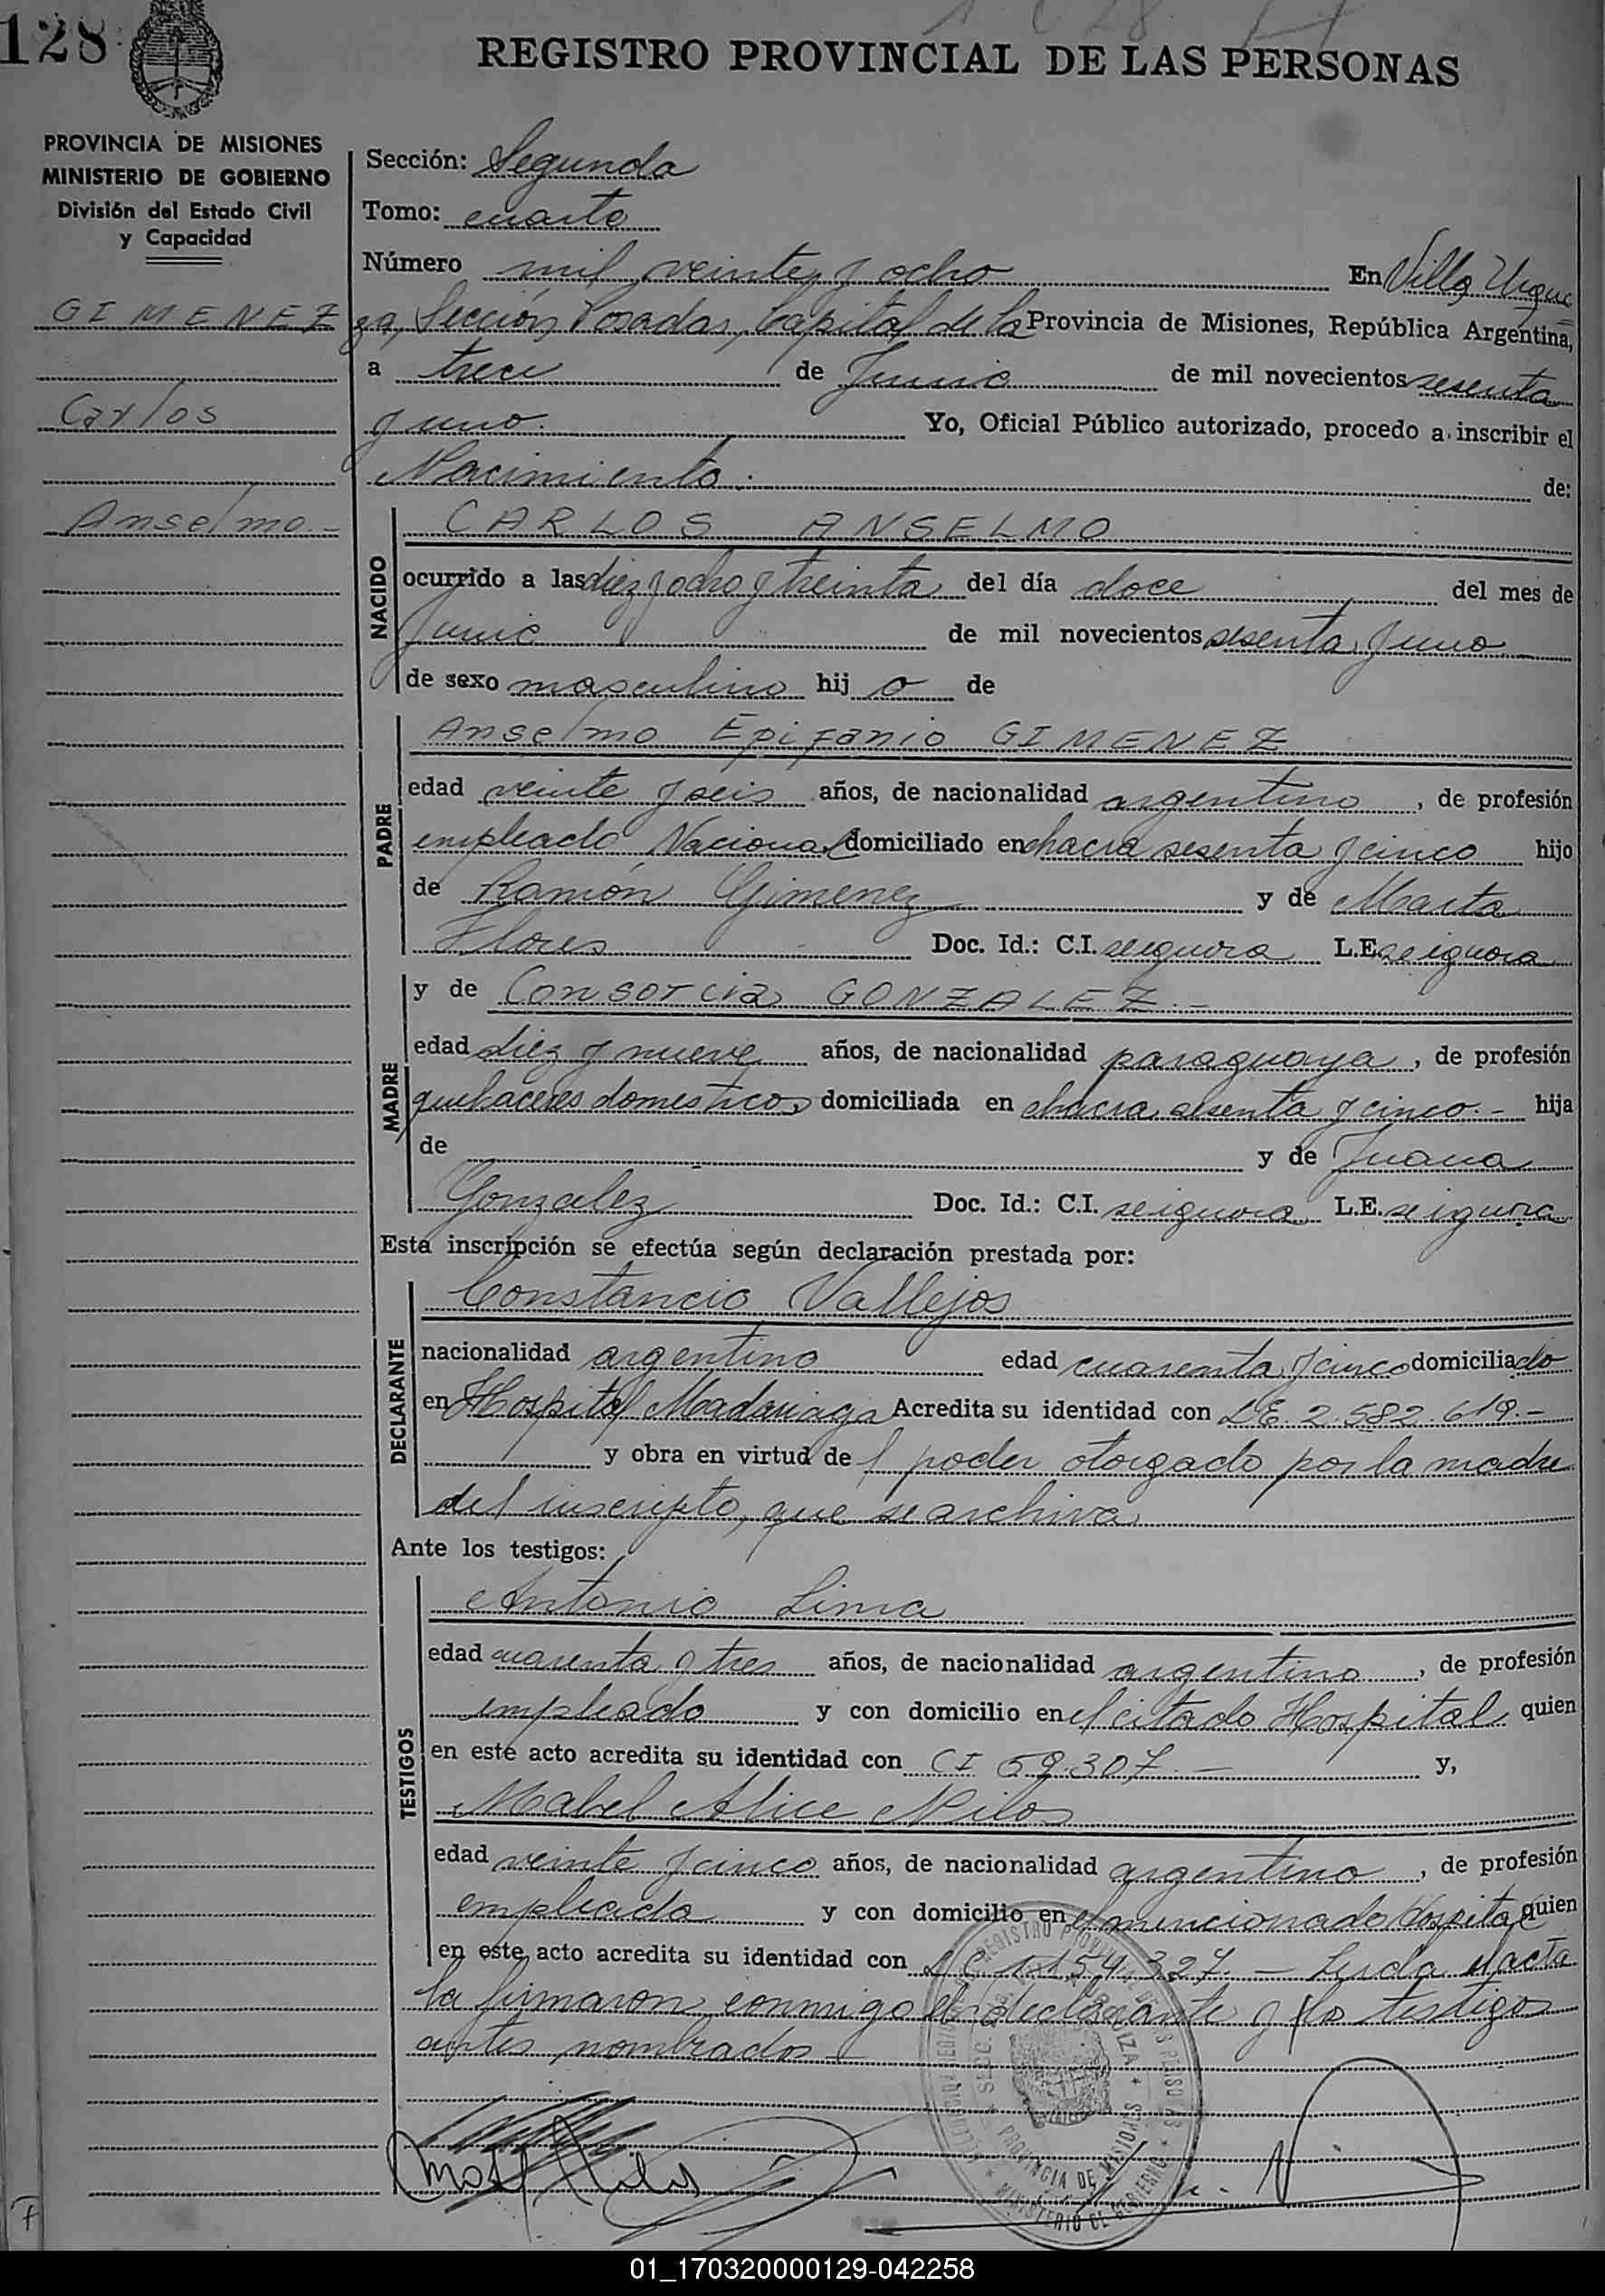 128
REGISTRO PROVINCIAL DE LAS PERSONAS
PROVINCIA DE MISIONES
MINISTERIO DE GOBIERNO
División del Estado Civil
y Capacidad
GIMENEZ
Carlos
Anselmo.-
Sección: Segunda
Tomo: cuarto
Número mil veinte y ocho En Villa Urqui
za, Sección Posadas, Capital de la Provincia de Misiones, República Argentina,
a trece de Junio de mil novecientos sesenta
y uno. Yo, Oficial Público autorizado, procedo a inscribir el
Nacimiento. de:
NACIDO
CARLOS ANSELMO
ocurrido a las diez y ocho y treinta del día doce del mes de
Junio de mil novecientos sesenta y uno
de sexo masculino hij o de
PADRE
Anselmo Epifanio GIMENEZ
edad veinte y seis años, de nacionalidad argentino, de profesión
empleado Nacional domiciliado en chacra sesenta y cinco hijo
de Ramón Gimenez y de Marta
Flores Doc. Id.: C.I. se ignora L.E. se ignora
MADRE
y de Consorcia GONZALEZ.-
edad diez y nueve años, de nacionalidad paraguaya, de profesión
quehaceres domesticos domiciliada en chacra sesenta y cinco.- hija
de y de Juana
Gonzalez Doc. Id.: C.I. se ignora L.E. se ignora
Esta inscripción se efectúa según declaración prestada por:
DECLARANTE
Constancio Vallejos
nacionalidad argentino edad cuarenta y cinco domiciliado
en Hospital Madariaga Acredita su identidad con LE 2.582.619.-
y obra en virtud del poder otorgado por la madre
del inscripto, que se archiva
Ante los testigos:
TESTIGOS
Antonio Lima
edad cuarenta y tres años, de nacionalidad argentino, de profesión
empleado y con domicilio en el citado Hospital quien
en este acto acredita su identidad con CI 59.307.- y,
Mabel Alice Milos
edad veinte y cinco años, de nacionalidad argentino, de profesión
empleada y con domicilio en el mencionado Hospital quien
en este acto acredita su identidad con LC 1.154.327.- Leída el acta
la firmaron conmigo el declarante y los testigos
antes nombrados
PROVINCIA DE MISIONES
MINISTERIO DE GOBIERNO
01_170320000129-042258